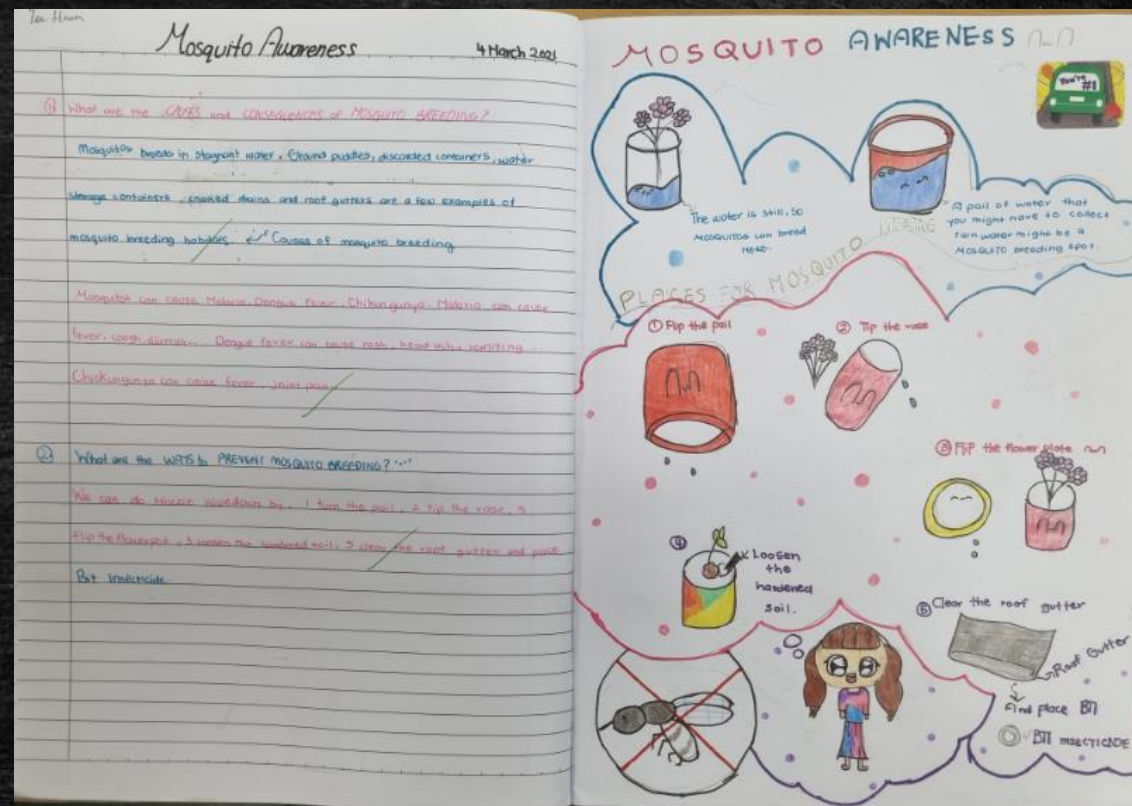 Mosquito Awareness
4 March 2021
① What are the CAUSES and CONSEQUENCES of MOSQUITO BREEDING?
Mosquitos breeds in stagnant water, Ground puddles, discarded containers, water
storage containers, choked drains and roof gutters are a few examples of
mosquito breeding habitats. Causes of mosquito breeding
Mosquitos can cause Malaria, Dengue fever, Chikungunya. Malaria can cause
fever, cough, Dengue fever can cause rash, head vomiting
Chickungunya can cause fever, joint pain
② What are the WAYS to PREVENT MOSQUITO BREEDING?
We can do Mozzie wipedown by. 1 turn the pail, 2 tip the vase, 3
flip the flowerpot, loosen the hardened soil, 5 clear the roof gutter and place
Bti Insecticide.
MOSQUITO AWARENESS
You're
#1
The water is still, so
MOSQUITOS can breed
HERE.
A pail of water that
you might have to collect
rain water might be a
MOSQUITO breeding spot.
PLACES FOR MOSQUITO
① Flip the pail
② Tip the vase
③ Flip the flower plate
④
Loosen
the
hardened
soil.
⑤ Clear the roof gutter
Roof Gutter
And place BTI
BTI INSECTICIDE